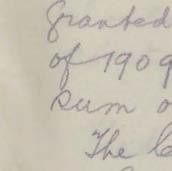 Granted
of 1909
Sum o
The